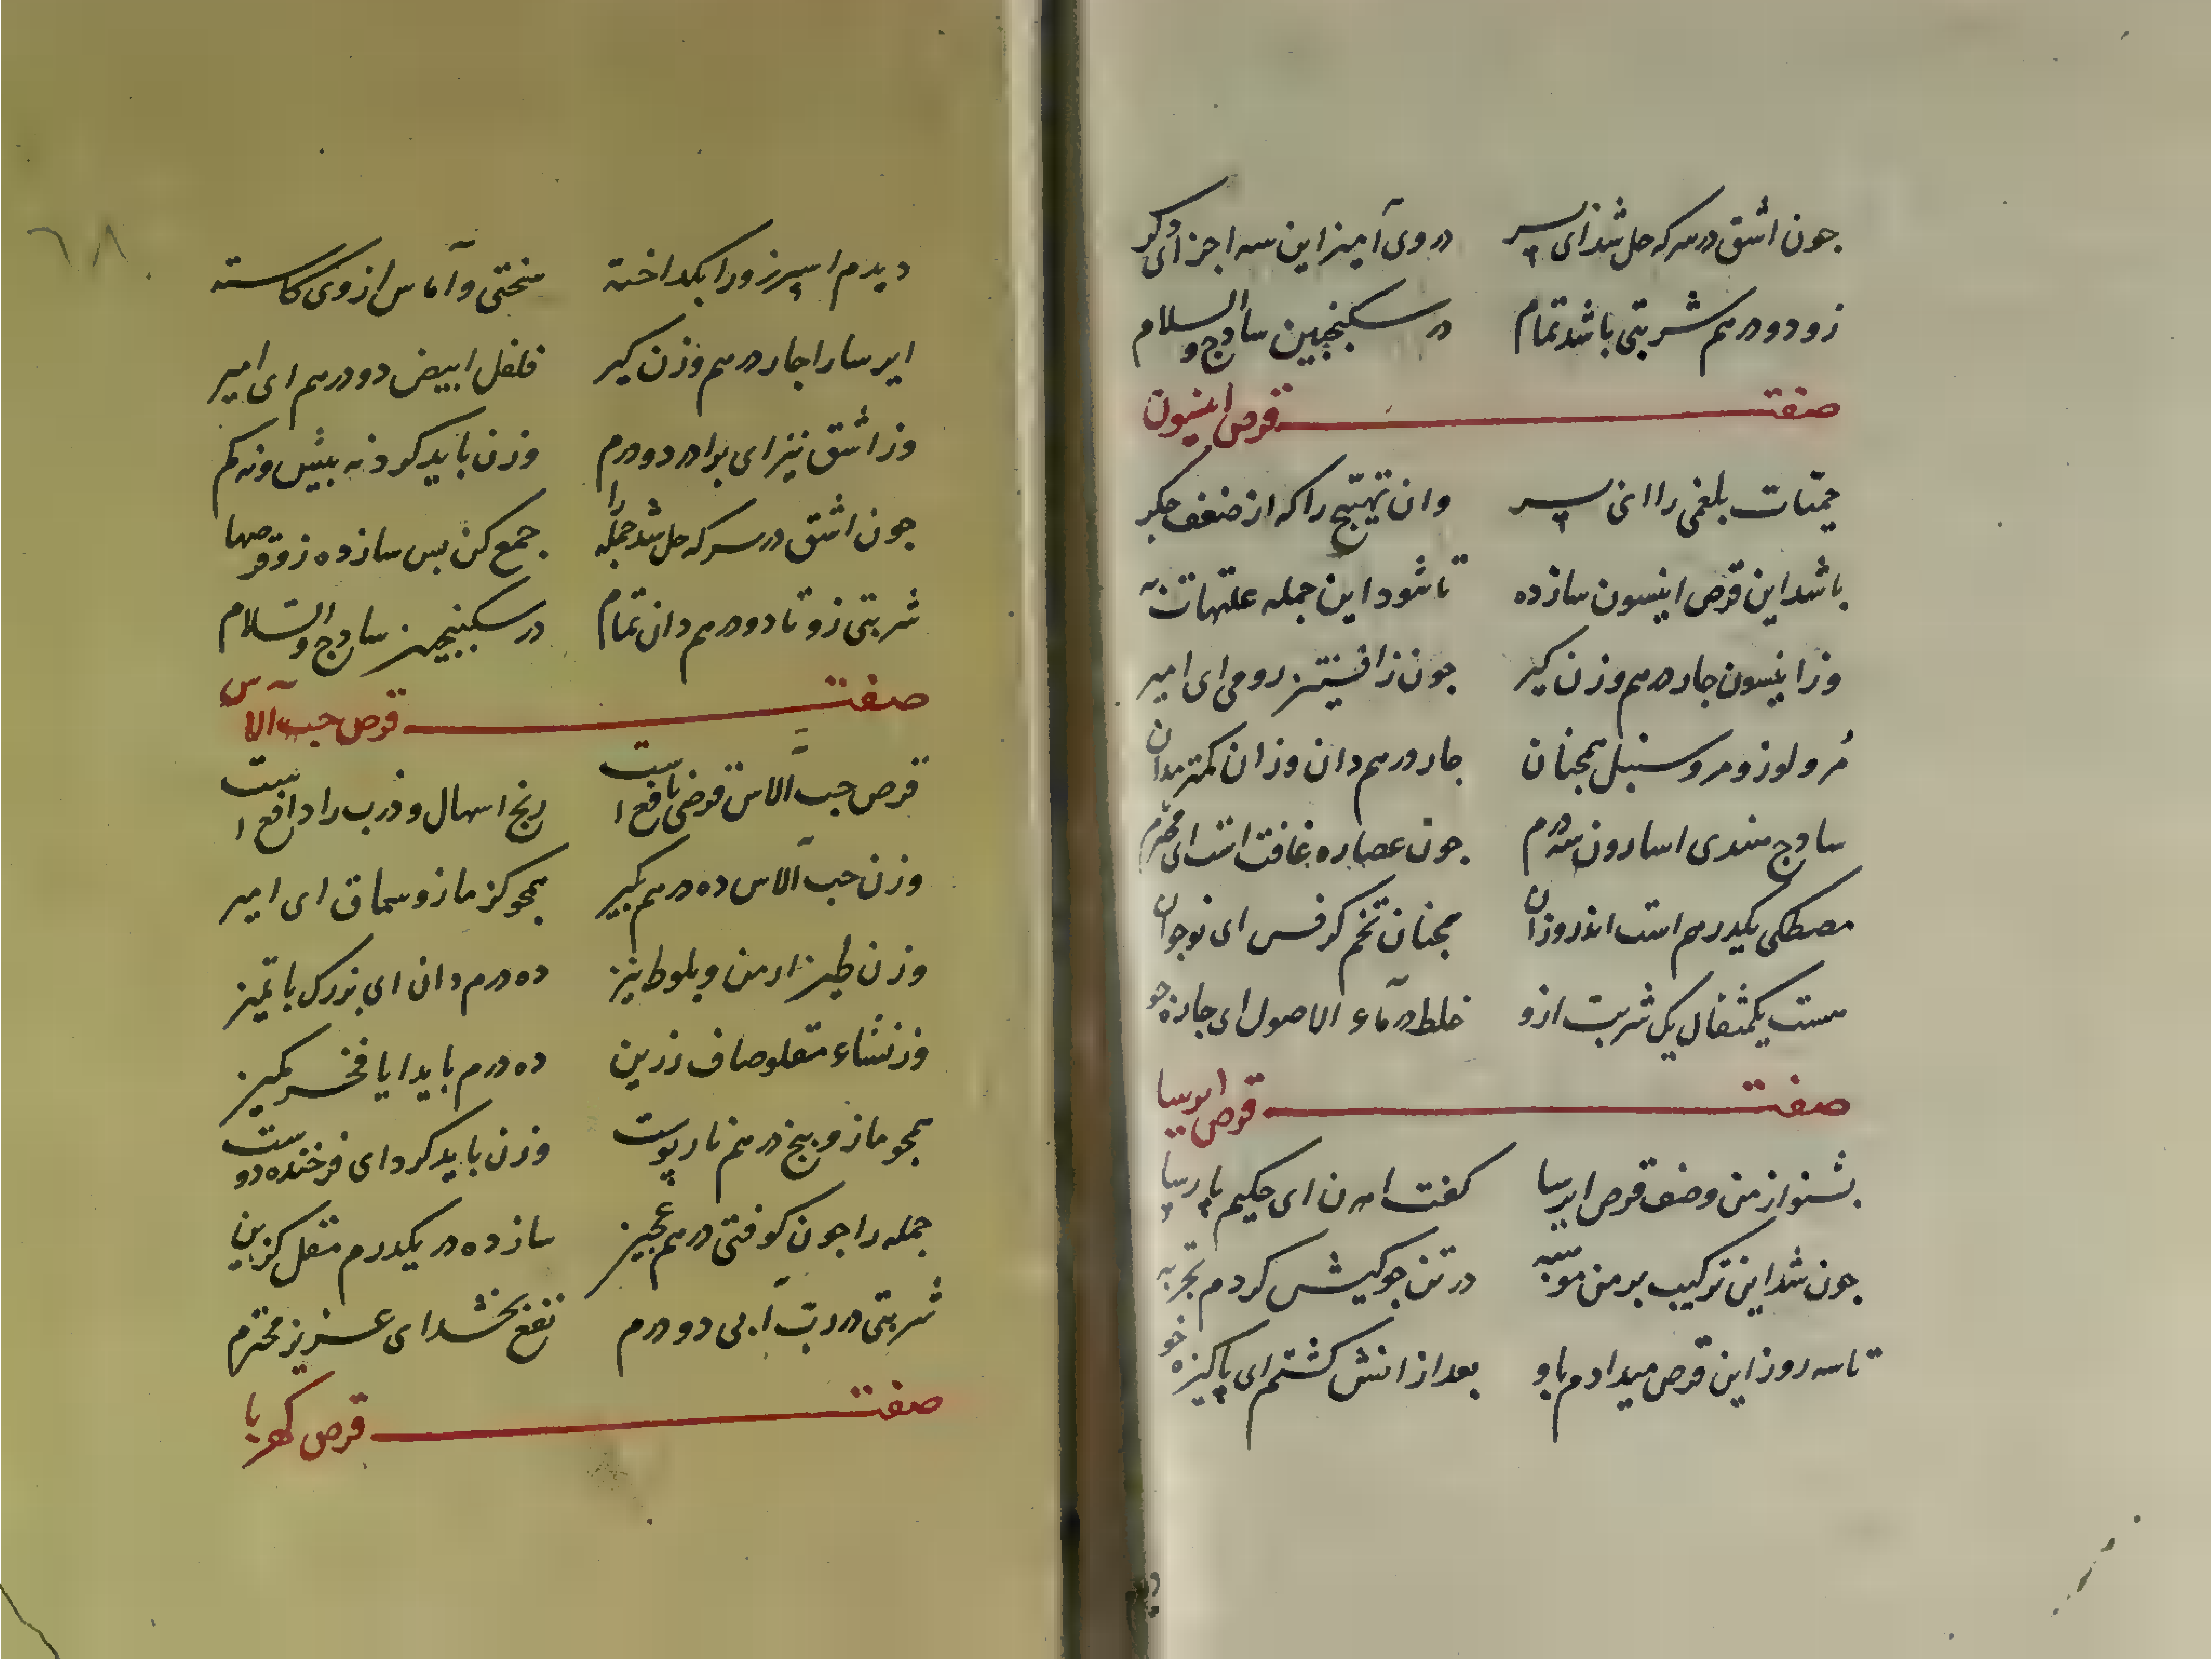 جون اشق در سرکه حل شد ای پسر در وی آمیز این سه اجزای دکر
زو دو درهم شربتی باشد تمام در سکنجبین سادج والسلام
صفت قرص انیسون
حمیّات بلغمی را ای پسر وان تهیّج را که از ضعف جکر
باشد این قرص انیسون ساز ده تا شود این جمله علتهات به
وز انیسون جار درهم وزن کیر جون ز افسنتین رومی ای امیر
مُر و لوز و مر و سنبل همجنان جار درهم دان وزان کمتر مدان
سادج هندی اسارون سه درم جون عصاره غافت است ای محترم
مصطکی یکدرهم است اندر وزان همجنان تخم کرفس ای نوجوان
هست یکمثقال یک شربت ازو خلط در ماء الاصول ای جاره جو
صفت قرص ایرسا
بشنو از من وصف قرص ایرسا کفت اهرن ای حکیم پارسا
جون شد این ترکیب بر من مونبه در تن جوکیش کردم تجربه
تا سه روز این قرص میدادم باو بعد ازانش کشتم ای پاکیزه خو
دیدم
٦٨
دیدم اسپرز ورا بکداخته سختی و آماس از وی کاسته
ایرسا را جار درهم وزن کیر فلفل ابیض دو درهم ای امیر
وز اشق نیز ای برادر دو درم وزن باید کرد نه بیش و نه کم
جون اشق در سرکه حل شد جمله را جمع کن بس ساز ده زو قرصها
شربتی زو تا دو درهم دان تمام در سکنجبین سادج والسلام
صفت قرص حب الآس
قرص حب الآس قرضی نافع است رنج اسهال و ذرب را دافع است
وزن حب الآس ده درهم بکیر همجو کزمازو سماق ای امیر
وزن طین ارمن و بلوط نیز ده درم دان ای بزرک با تمیز
وز نشاء مقلو صاف رزین ده درم باید ایا فخر مکین
همجو مازو بیخ درهم نار پوست وزن باید کرد ای فرخنده دوست
جمله را جون کوفتی درهم عجین ساز ده در یکدرم مقل کزین
شربتی در ربّ آبی دو درم نفع بخشد ای عزیز محترم
صفت قرص کهربا